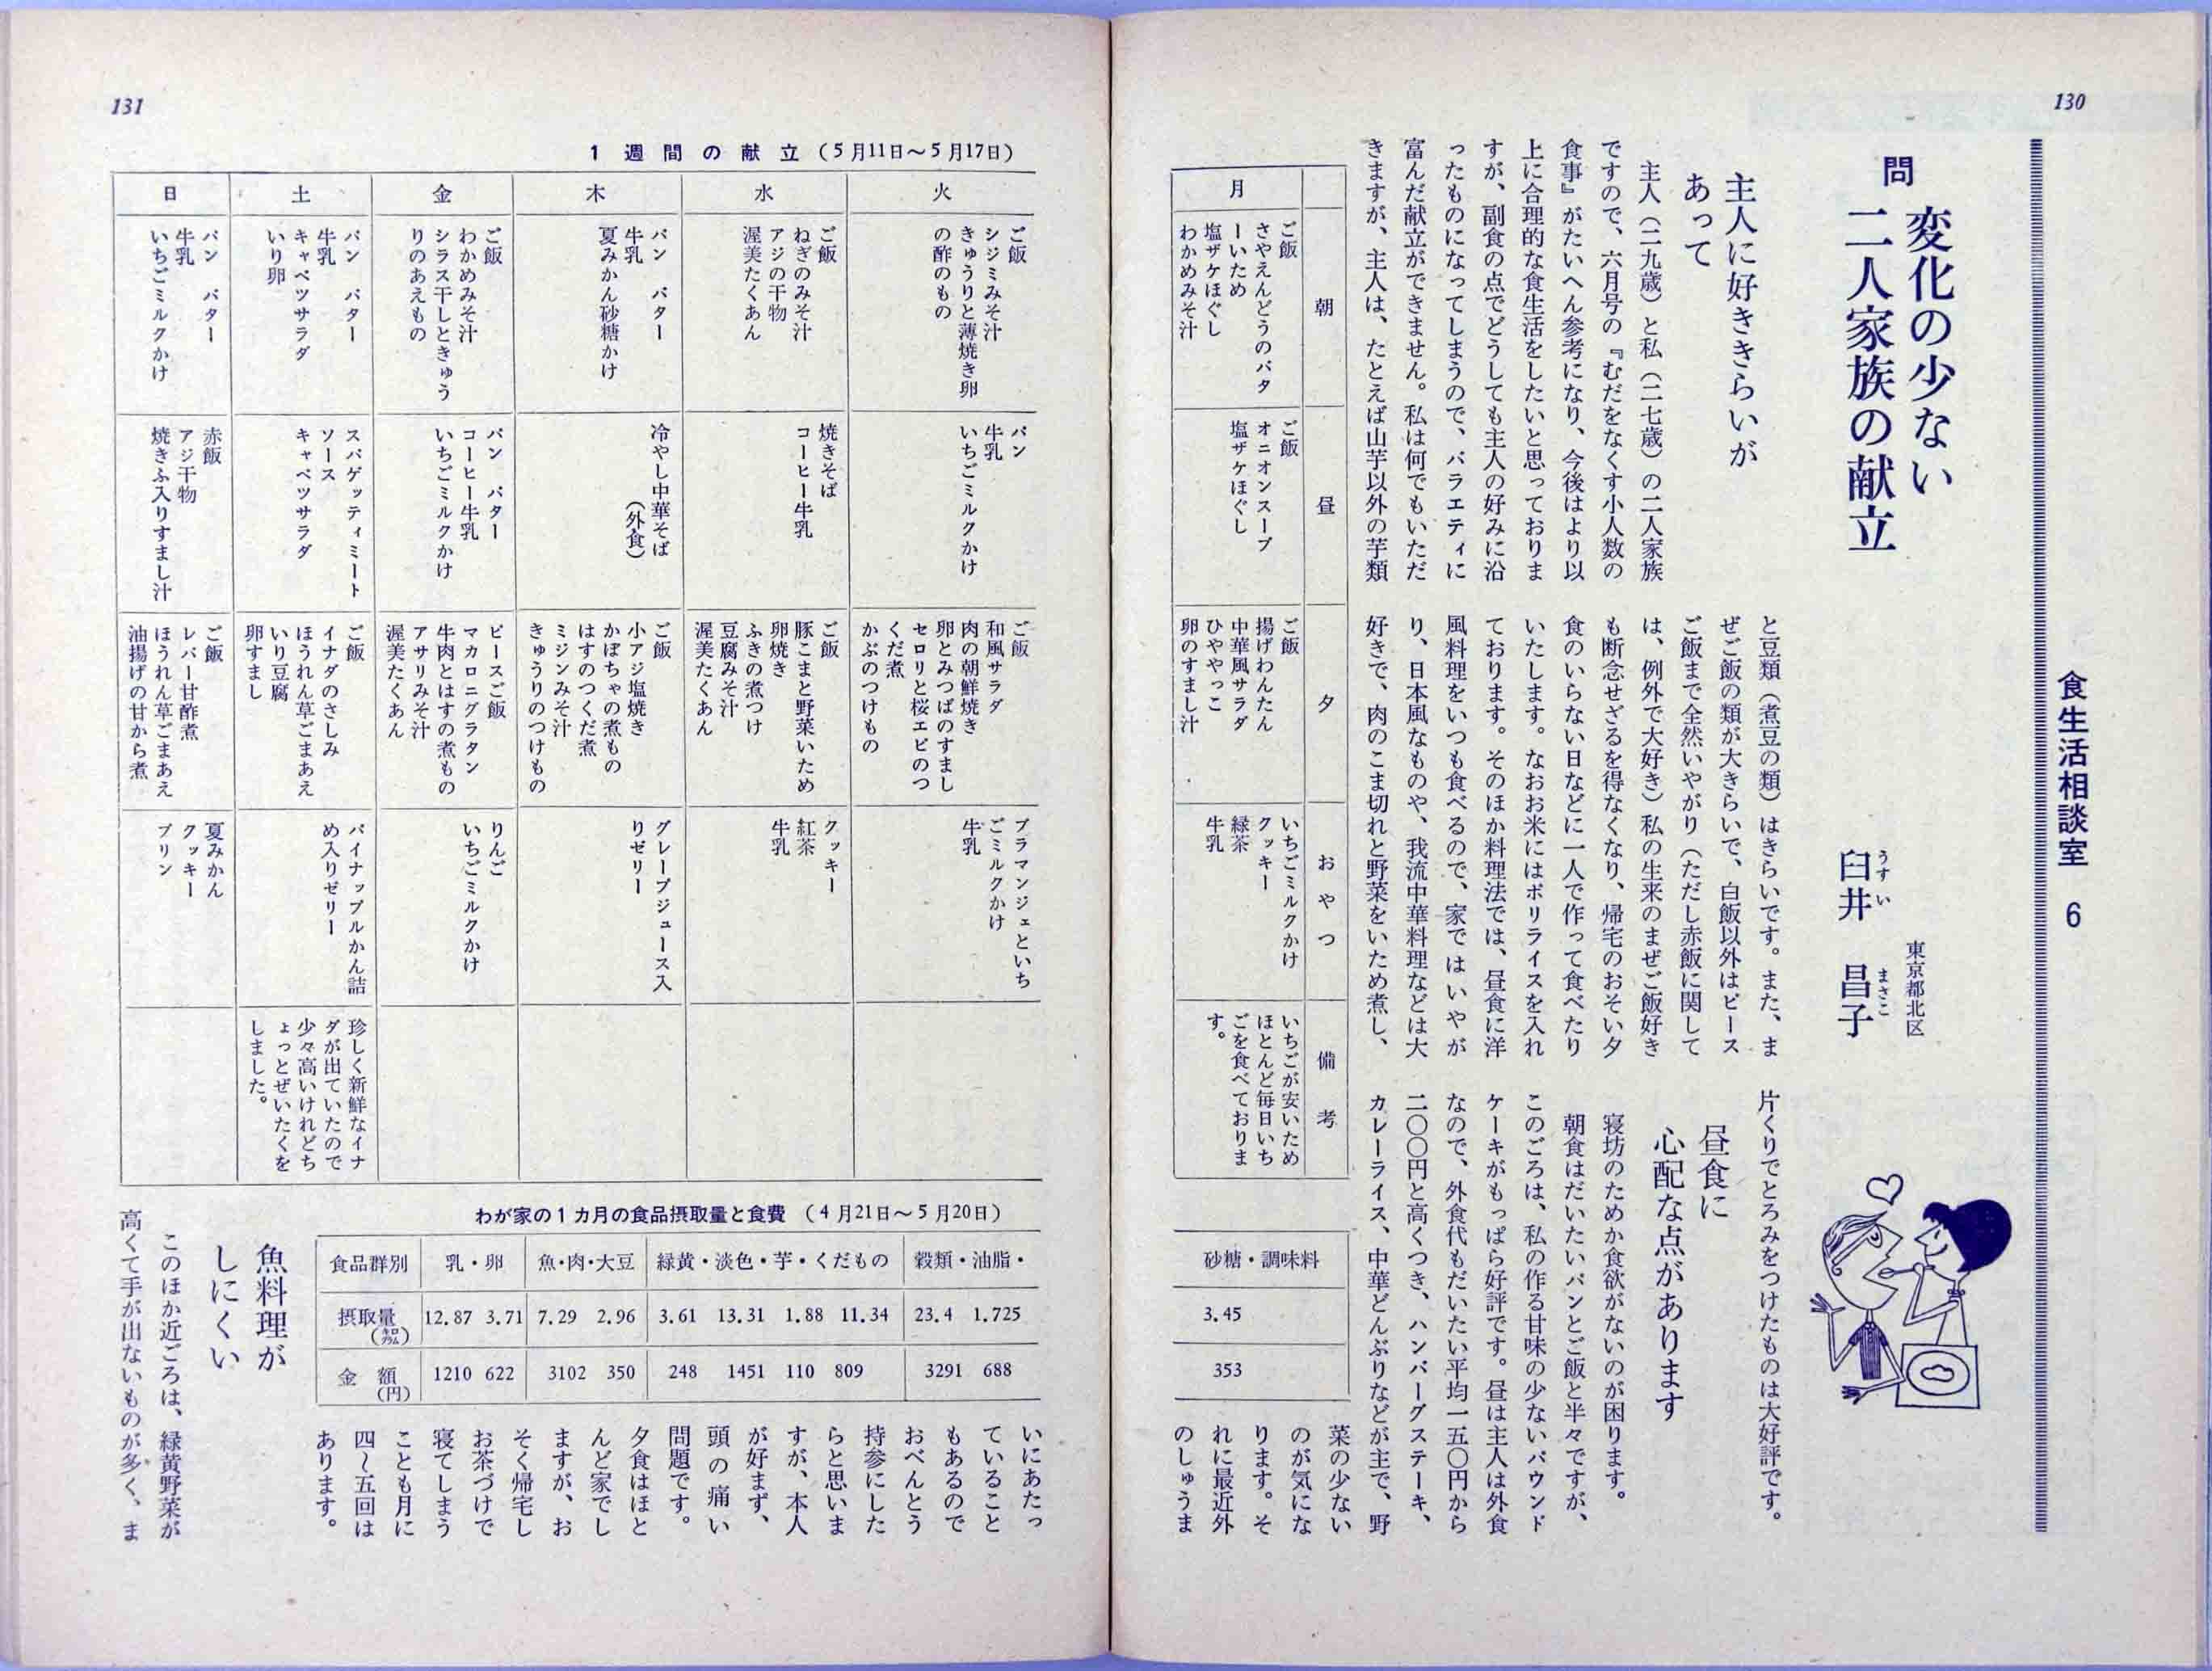 130
食生活相談室 6
問
変化の少ない
二人家族の献立
東京都北区
臼井 昌子
うすい まさこ
主人に好ききらいが
あって
主人（二九歳）と私（二七歳）の二人家族
ですので、六月号の『むだをなくす小人数の
食事』がたいへん参考になり、今後はより以
上に合理的な食生活をしたいと思っておりま
すが、副食の点でどうしても主人の好みに沿
ったものになってしまうので、バラエティに
富んだ献立ができません。私は何でもいただ
きますが、主人は、たとえば山芋以外の芋類
と豆類（煮豆の類）はきらいです。また、ま
ぜご飯の類が大きらいで、白飯以外はピース
ご飯まで全然いやがり（ただし赤飯に関して
は、例外で大好き）私の生来のまぜご飯好き
も断念せざるを得なくなり、帰宅のおそい夕
食のいらない日などに一人で作って食べたり
いたします。なおお米にはポリライスを入れ
ております。そのほか料理法では、昼食に洋
風料理をいつも食べるので、家ではいやが
り、日本風なものや、我流中華料理などは大
好きで、肉のこま切れと野菜をいため煮し、
片くりでとろみをつけたものは大好評です。
昼食に
心配な点があります
寝坊のためか食欲がないのが困ります。
朝食はだいたいパンとご飯と半々ですが、
このごろは、私の作る甘味の少ないパウンド
ケーキがもっぱら好評です。昼は主人は外食
なので、外食代もだいたい平均一五〇円から
二〇〇円と高くつき、ハンバーグステーキ、
カレーライス、中華どんぶりなどが主で、野
菜の少ない
のが気にな
ります。そ
れに最近外
のしゅうま
月
朝
昼
夕
おやつ
備考
ご飯
さやえんどうのバタ
ーいため
塩ザケほぐし
わかめみそ汁
ご飯
オニオンスープ
塩ザケほぐし
ご飯
揚げわんたん
中華風サラダ
ひややっこ
卵のすまし汁
いちごミルクかけ
クッキー
緑茶
牛乳
いちごが安いため
ほとんど毎日いち
ごを食べておりま
す。
砂糖・調味料
3.45
353
131
1週間の献立（5月11日〜5月17日）
火
ご飯
シジミみそ汁
きゅうりと薄焼き卵
の酢のもの
パン
牛乳
いちごミルクかけ
ご飯
和風サラダ
肉の朝鮮焼き
卵とみつばのすまし
セロリと桜エビのつ
くだ煮
かぶのつけもの
ブラマンジェといち
ごミルクかけ
牛乳
水
ご飯
ねぎのみそ汁
アジの干物
渥美たくあん
焼きそば
コーヒー牛乳
ご飯
豚こまと野菜いため
卵焼き
ふきの煮つけ
豆腐みそ汁
渥美たくあん
クッキー
紅茶
牛乳
木
パン バター
牛乳
夏みかん砂糖かけ
冷やし中華そば
（外食）
ご飯
小アジ塩焼き
かぼちゃの煮もの
はすのつくだ煮
ミジンみそ汁
きゅうりのつけもの
グレープジュース入
りゼリー
金
ご飯
わかめみそ汁
シラス干しときゅう
りのあえもの
パン バター
コーヒー牛乳
いちごミルクかけ
ピースご飯
マカロニグラタン
牛肉とはすの煮もの
アサリみそ汁
渥美たくあん
りんご
いちごミルクかけ
土
パン バター
牛乳
キャベツサラダ
いり卵
スパゲッティミート
ソース
キャベツサラダ
ご飯
イナダのさしみ
ほうれん草ごまあえ
いり豆腐
卵すまし
パイナップルかん詰
め入りゼリー
珍しく新鮮なイナ
ダが出ていたので
少々高いけれどち
ょっとぜいたくを
しました。
日
パン バター
牛乳
いちごミルクかけ
赤飯
アジ干物
焼きふ入りすまし汁
ご飯
レバー甘酢煮
ほうれん草ごまあえ
油揚げの甘から煮
夏みかん
クッキー
プリン
わが家の1カ月の食品摂取量と食費（4月21日〜5月20日）
食品群別 乳・卵 魚・肉・大豆 緑黄・淡色・芋・くだもの 穀類・油脂・
摂取量（キログラム） 12.87 3.71 7.29 2.96 3.61 13.31 1.88 11.34 23.4 1.725
金額（円） 1210 622 3102 350 248 1451 110 809 3291 688
いにあたっ
ていること
もあるので
おべんとう
持参にした
らと思いま
すが、本人
が好まず、
頭の痛い
問題です。
夕食はほと
んど家でし
ますが、お
そく帰宅し
お茶づけで
寝てしまう
ことも月に
四〜五回は
あります。
魚料理が
しにくい
このほか近ごろは、緑黄野菜が
高くて手が出ないものが多く、ま